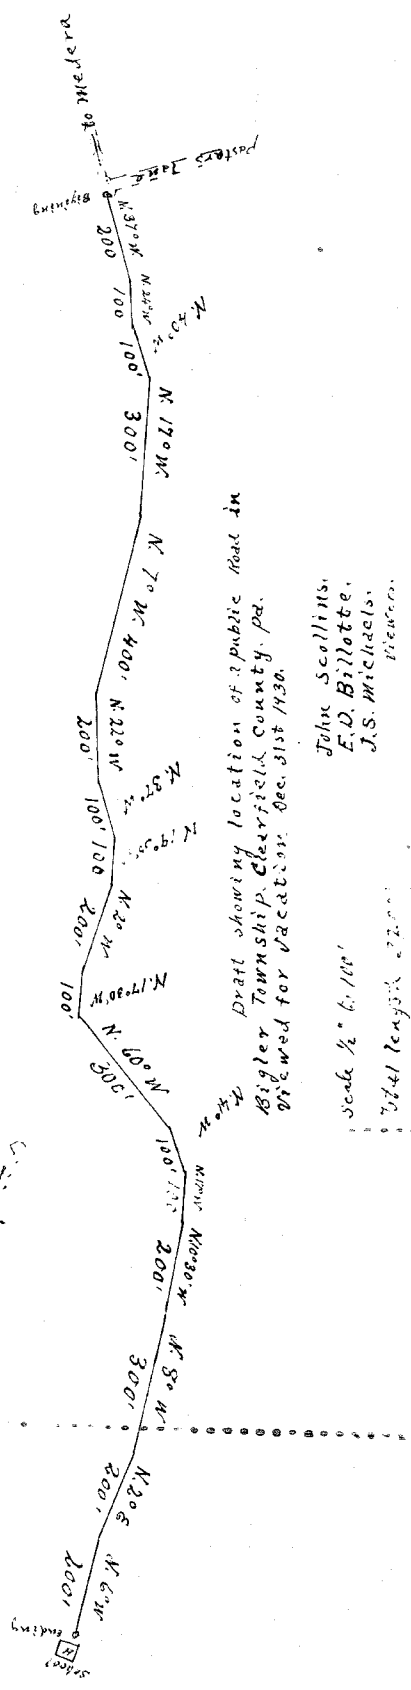 to Medera
Beginning
N. 37° W.
200
N. 24° W
100
100'
N. 17° W.
300'
N. 7° W. 400'
N. 22° W
200'
N. 37°
100'
100
N. 2° W
200'
N. 17° 30' W
100'
N. 60° W
300'
100'
100
N. 10° 30' W
200'
N. 8° W
300'
N. 2° E
200'
N. 6° W
200'
Ending
School
H
Draft showing location of a public Road in
Bigler Township, Clearfield County, Pa.
Viewed for vacation Dec. 31st 1930.
John Scollins.
E.D. Billotte.
J.S. Michaels.
Viewers.
Scale ½" to 100'
Total length